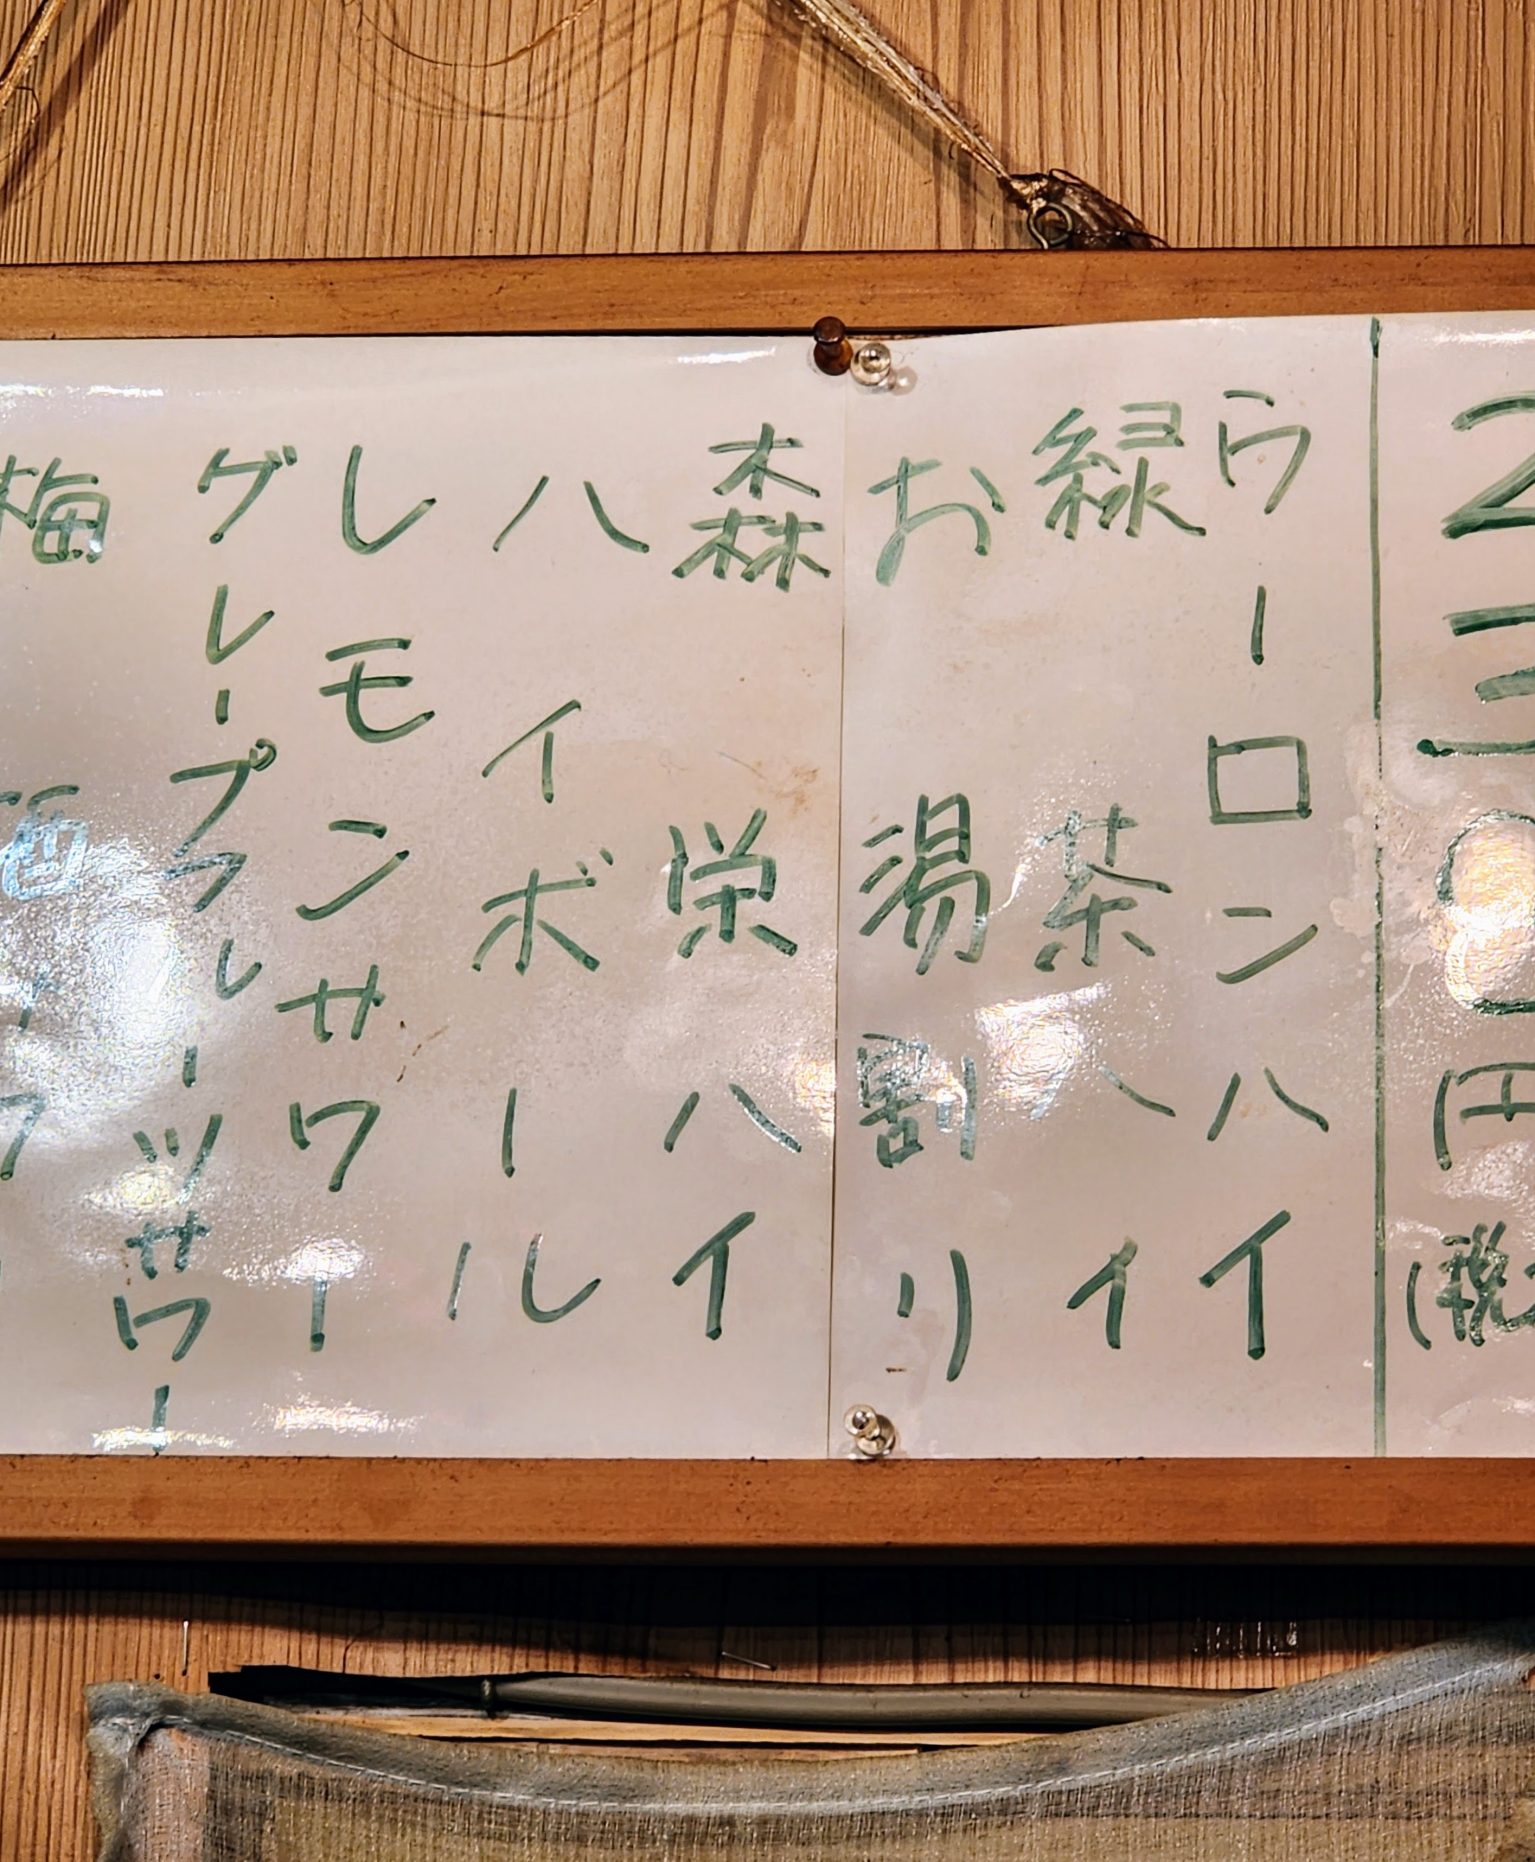 二三〇円(税
ウーロンハイ
緑茶ハイ
お湯割り
森栄ハイ
ハイボール
レモンサワー
グレープフルーツサワー
梅酒